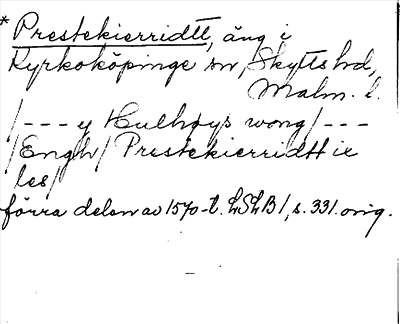 * Prestekierridtt, äng i
Kyrkoköpinge sn, Skytts hd,
Malm. l.
/--- y Hulhøys wong/---
/Engh/ Prestekierridtt ix
les/
förra delen av 1570-t. LSLB 1, s. 331. orig.